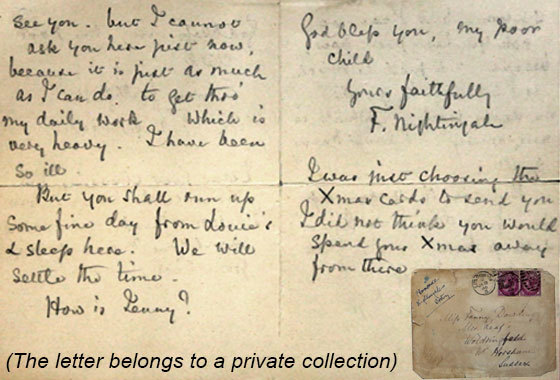 see you. but I cannot
ask you here just now,
because it is just as much
as I can do. to get thro'
my daily work which is
very heavy. I have been
so ill.
But you shall run up
some fine day from Louie's
& sleep here. We will
settle the time.
How is Jenny?
God bless you, my poor
child
Yours faithfully
F. Nightingale
I was just choosing the
Xmas cards to send you
I did not think you would
spend your Xmas away
from there
Miss Fanny Dowding
Sussex
(The letter belongs to a private collection)